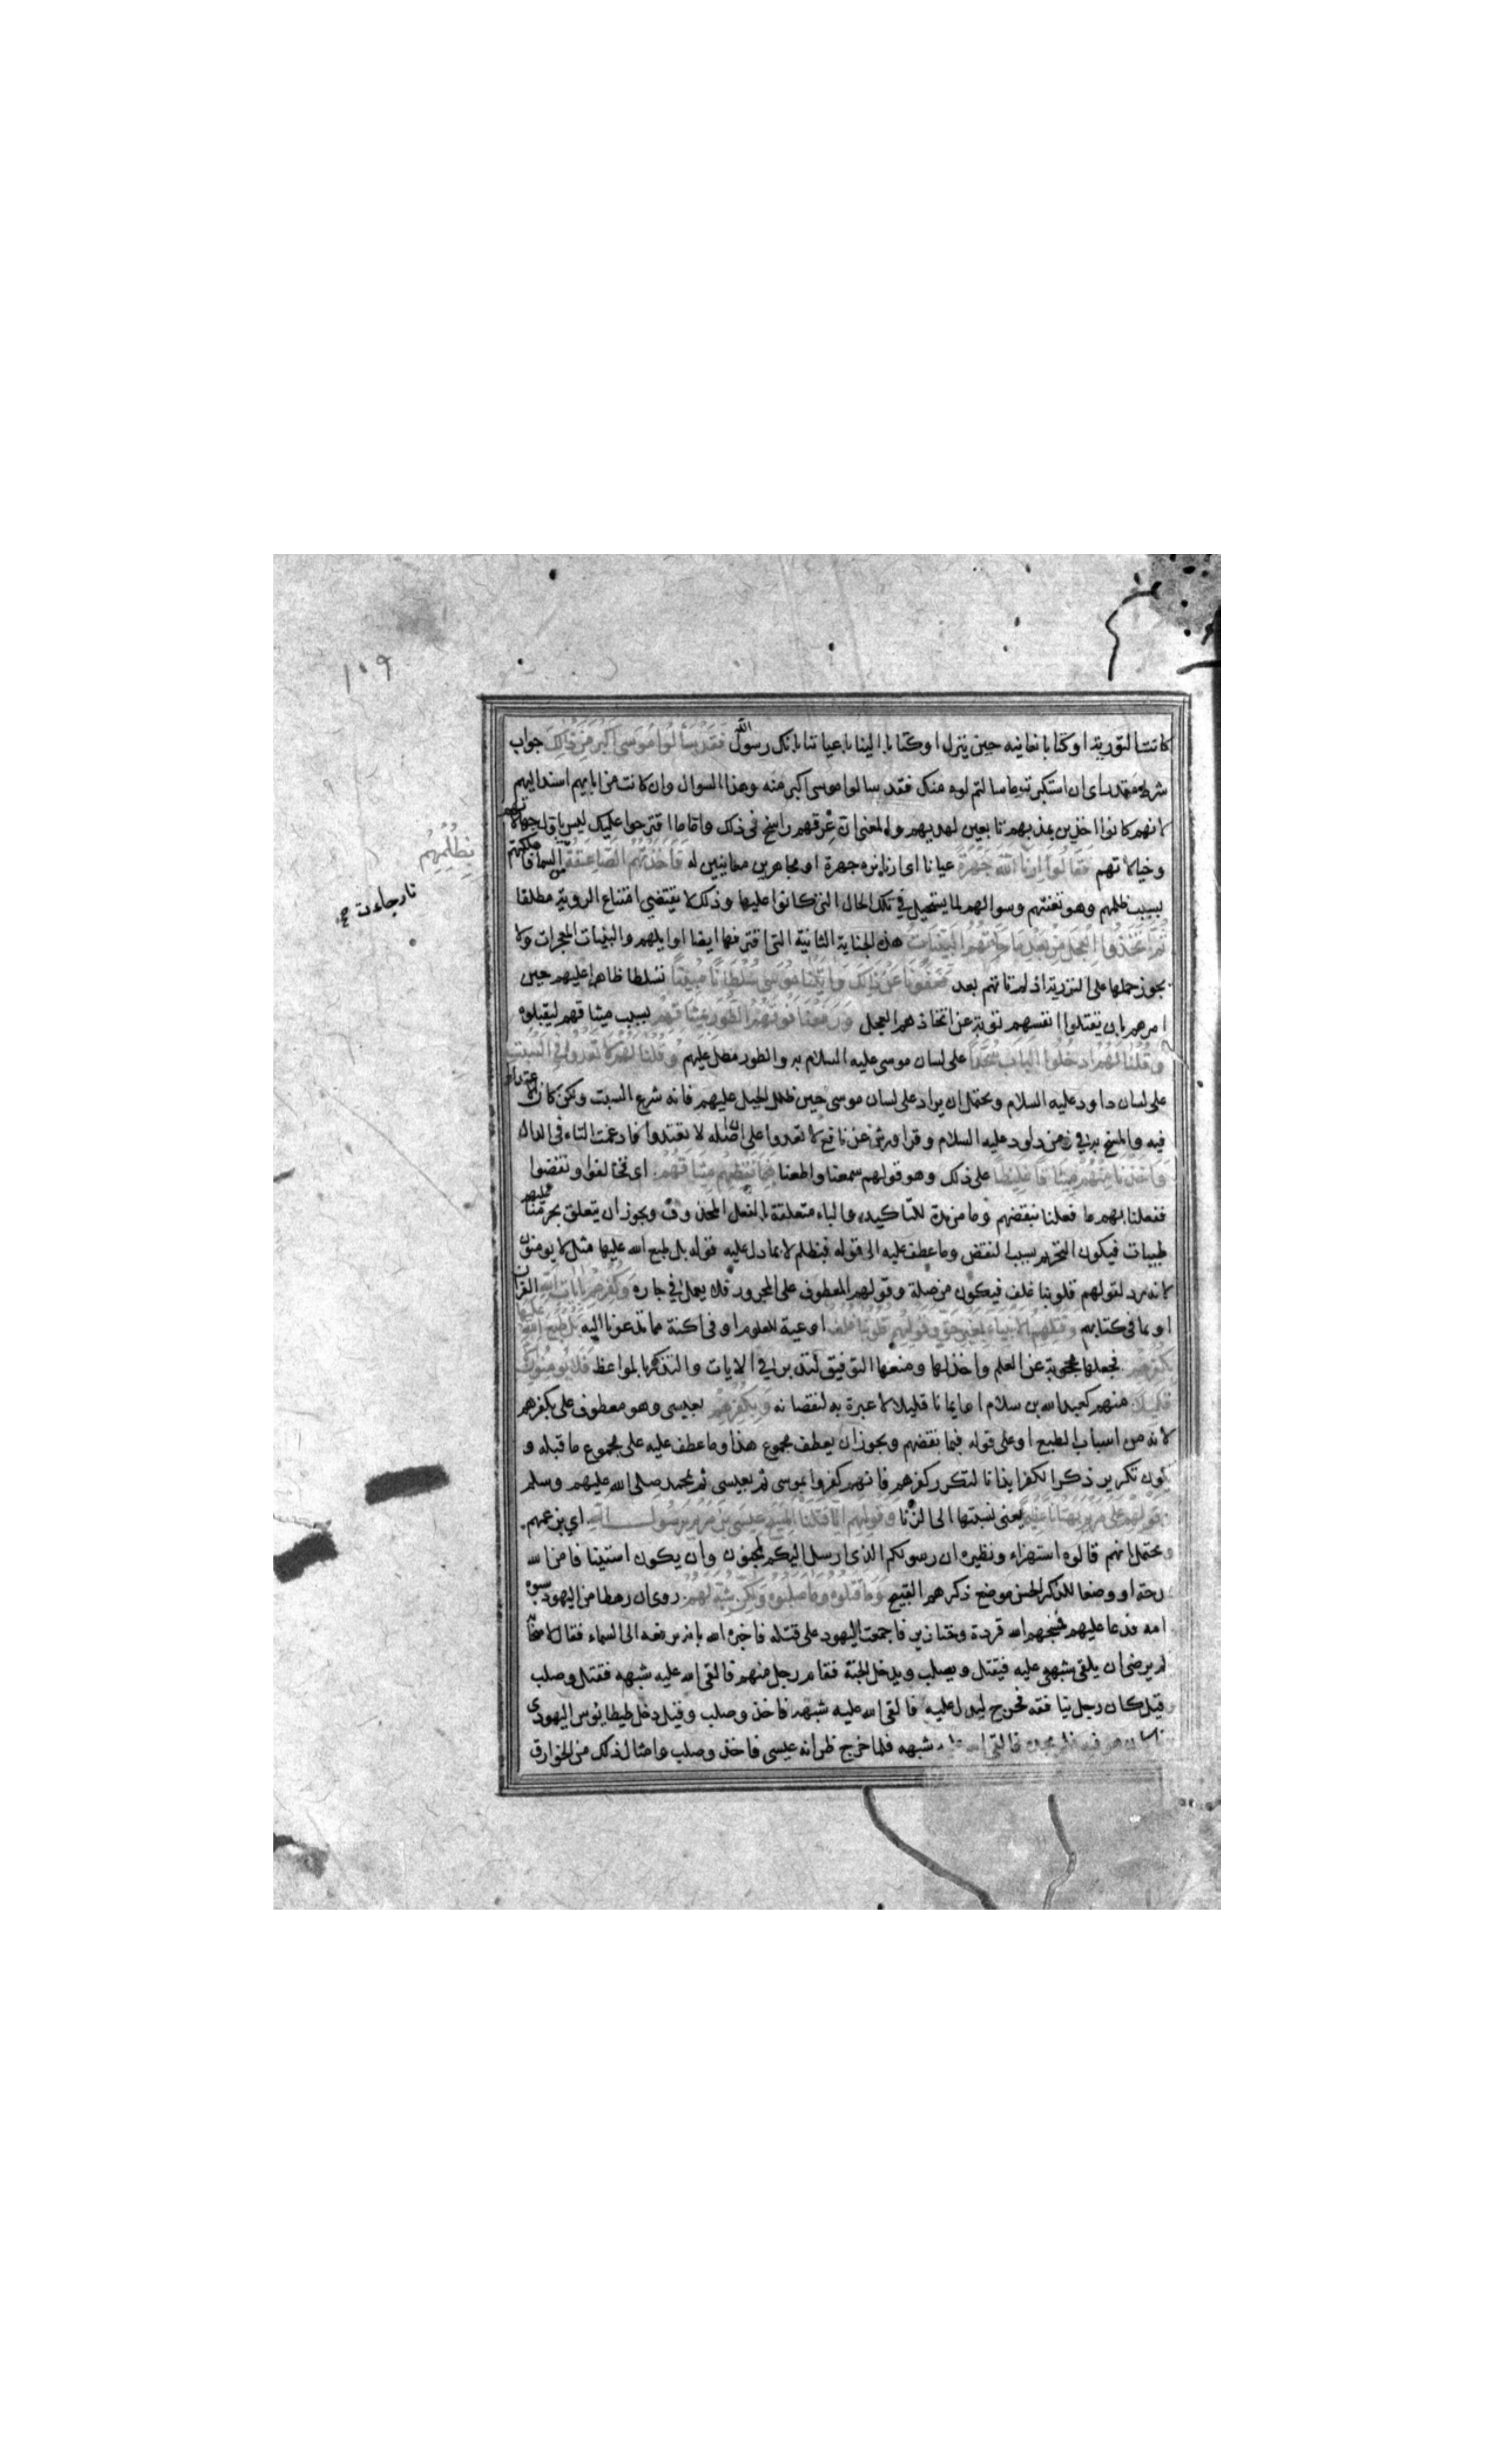 ١٠٩
كانت التورية او كتابا نعاينه حين ينزل او كتابا الينا باعياننا بانك رسول الله فقد سالوا موسى اكبر من ذلك جواب
شرط مقدر اى ان استكبرت ما سالتم لوه منك فقد سالوا موسى اكبر منه وهذا السوال وان كانت من ابايهم اسند اليهم
لانهم كانوا اخذين بمذهبهم تابعين لهديهم والمعنى ان عرقهم راسخ فى ذلك وان ما اقترحوا عليك ليس باول جهالاتهم
وخيالاتهم فقالوا ارنا الله جهرة عيانا اى ارنا نره جهرة او مجاهرين معاينين له فاخذتهم الصاعقة
بظلمهم
نار جاءت من السماء فاهلكتهم
بسبب ظلمهم وهو تعنتهم وسوالهم لما يستحيل فى تلك الحال التى كانوا عليها وذلك لا يقتضى امتناع الروية مطلقا
ثم اتخذوا العجل من بعد ما جاءتهم البينات هذه الجناية الثانية التى اقترفها ايضا اوايلهم والبينات المعجزات ولا
يجوز حملها على التورية اذ لم تاتهم بعد فعفونا عن ذلك واتينا موسى سلطانا مبينا تسلطا ظاهرا عليهم حين
امرهم بان يقتلوا انفسهم توبة عن اتخاذهم العجل ورفعنا فوقهم الطور بميثاقهم بسبب ميثاقهم ليقبلوه
وقلنا لهم ادخلوا الباب سجدا على لسان موسى عليه السلام والطور مظل عليهم وقلنا لهم لا تعدوا فى السبت
على لسان داود عليه السلام ويحتمل ان يراد على لسان موسى حين ظلل الجبل عليهم فانه شرع السبت ولكن كان الاعتداء
فيه والمسخ به فى زمن داود عليه السلام وقرا ورش عن نافع لا تعدوا على ان اصله لا تعتدوا فادغمت التاء فى الدال
واخذنا منهم ميثاقا غليظا على ذلك وهو قولهم سمعنا واطعنا فبما نقضهم ميثاقهم اى فخالفوا ونقضوا
ففعلنا بهم ما فعلنا بنقضهم وما مزيدة للتاكيد والباء متعلقة بالفعل المحذوف ويجوز ان يتعلق بحرمنا عليهم
طيبات فيكون التحريم بسبب النقض وما عطف عليه الى قوله فبظلم لا بما دل عليه قوله بل طبع الله عليها مثل لا يومنون
لانه رد لقولهم قلوبنا غلف فيكون من صلة وقولهم المعطوف على المجرور فلا يعمل فى جاره وكفرهم بايات الله القران
او بما فى كتابهم وقتلهم الانبياء بغير حق وقولهم قلوبنا غلف اوعية للعلوم او فى اكنة مما تدعونا اليه بل طبع الله عليها
بكفرهم فجعلها محجوبة عن العلم او خذلها ومنعها التوفيق للتدبر فى الايات والتذكر بالمواعظ فلا يومنون الا
قليلا منهم كعبد الله بن سلام او ايمانا قليلا لا عبرة به لنقصانه وبكفرهم بعيسى وهو معطوف على بكفرهم
لانه من اسباب الطبع او على قوله فبما نقضهم ويجوز ان يعطف مجموع هذا وما عطف عليه على مجموع ما قبله و
يكون تكرير ذكر الكفر ايذانا لتكرر كفرهم فانهم كفروا بموسى ثم بعيسى ثم بمحمد صلى الله عليهم وسلم
وقولهم على مريم بهتانا عظيما يعنى نسبتها الى الزنا وقولهم انا قتلنا المسيح عيسى بن مريم رسول الله اي بزعمهم
ويحتمل انهم قالوه استهزاء ونظيره ان رسولكم الذى ارسل اليكم لمجنون وان يكون استينافا من الله
او وضعا للذكر الحسن موضع ذكرهم القبيح وما قتلوه وما صلبوه ولكن شبه لهم روى ان رهطا من اليهود سبوه
امه فدعا عليهم فمسخهم الله قردة وخنازير فاجمعت اليهود على قتله فاخبره الله بانه يرفعه الى السماء فقال لاصحابه
ايكم يرضى ان يلقى شبهى عليه فيقتل ويصلب ويدخل الجنة فقام رجل منهم فالقى الله عليه شبهه فقتل وصلب
وقيل كان رجلا ينافقه فخرج ليدل عليه فالقى الله عليه شبهه فاخذ وصلب وقيل دخل طيطايوس اليهودى
هو فيه فلم يجده فالقى الله عليه شبهه فلما خرج ظن انه عيسى فاخذ وصلب وامثال ذلك من الخوارق